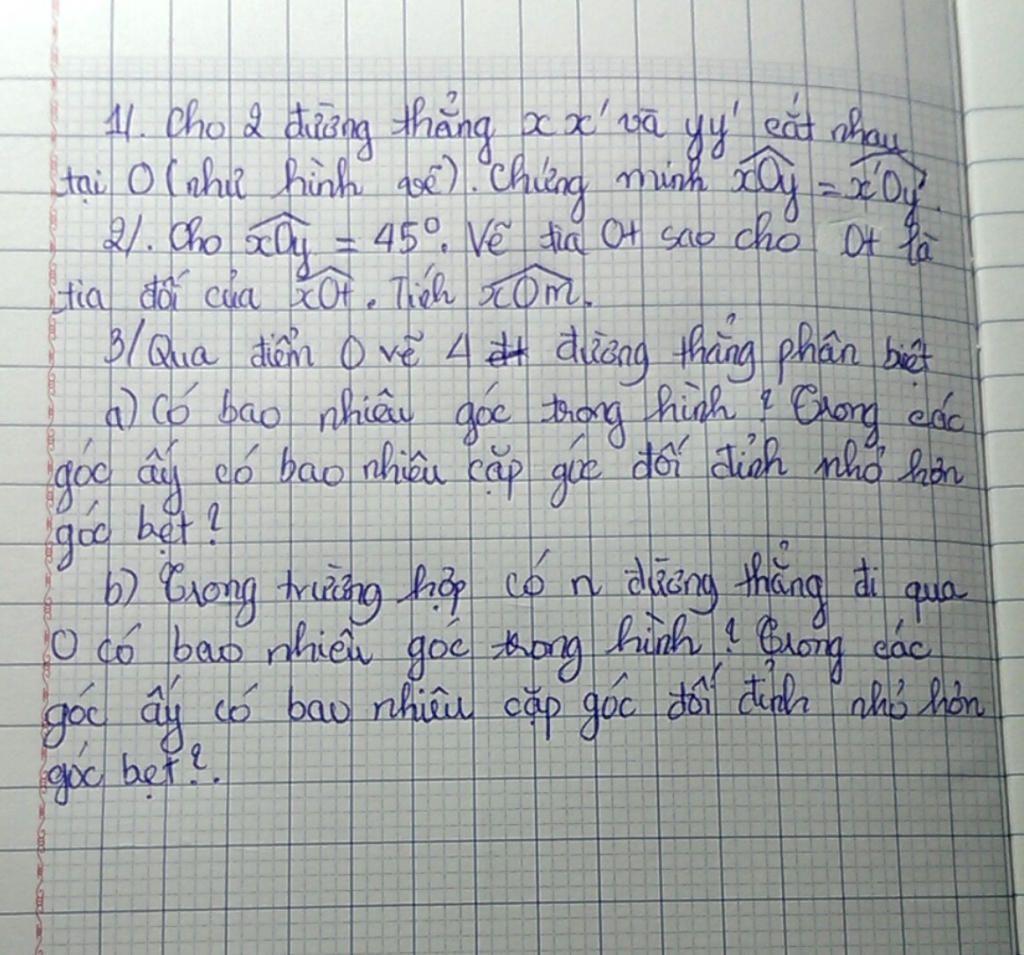 1/. Cho 2 đường thẳng xx' và yy' cắt nhau
tại O (như hình vẽ). Chứng minh xOy = x'Oy'.
2/. Cho xOy = 45°. Vẽ tia Ot sao cho Ot là
tia đối của xOt. Tính xOm.
3/ Qua điểm O vẽ 4 đường thẳng phân biệt
a) Có bao nhiêu góc trong hình? Trong các
góc ấy có bao nhiêu cặp góc đối đỉnh nhỏ hơn
góc bẹt?
b) Trong trường hợp có n đường thẳng đi qua
O có bao nhiêu góc trong hình? Trong các
góc ấy có bao nhiêu cặp góc đối đỉnh nhỏ hơn
góc bẹt?.